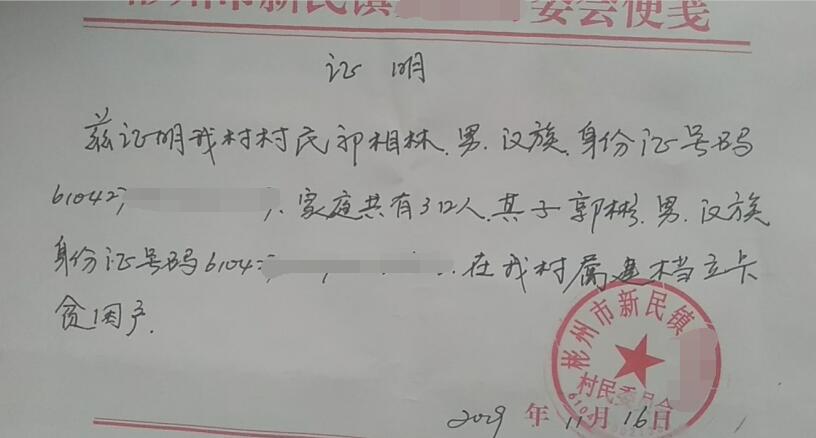 彬州市新民镇 委会便笺
证 明
兹证明我村村民郭相林、男、汉族、身份证号码
61042 、家庭共有3口人、其子郭彬、男、汉族
身份证号码6104 、在我村属建档立卡
贫困户.
彬州市新民镇
村民委员会
6104
2019 年 11月 16日